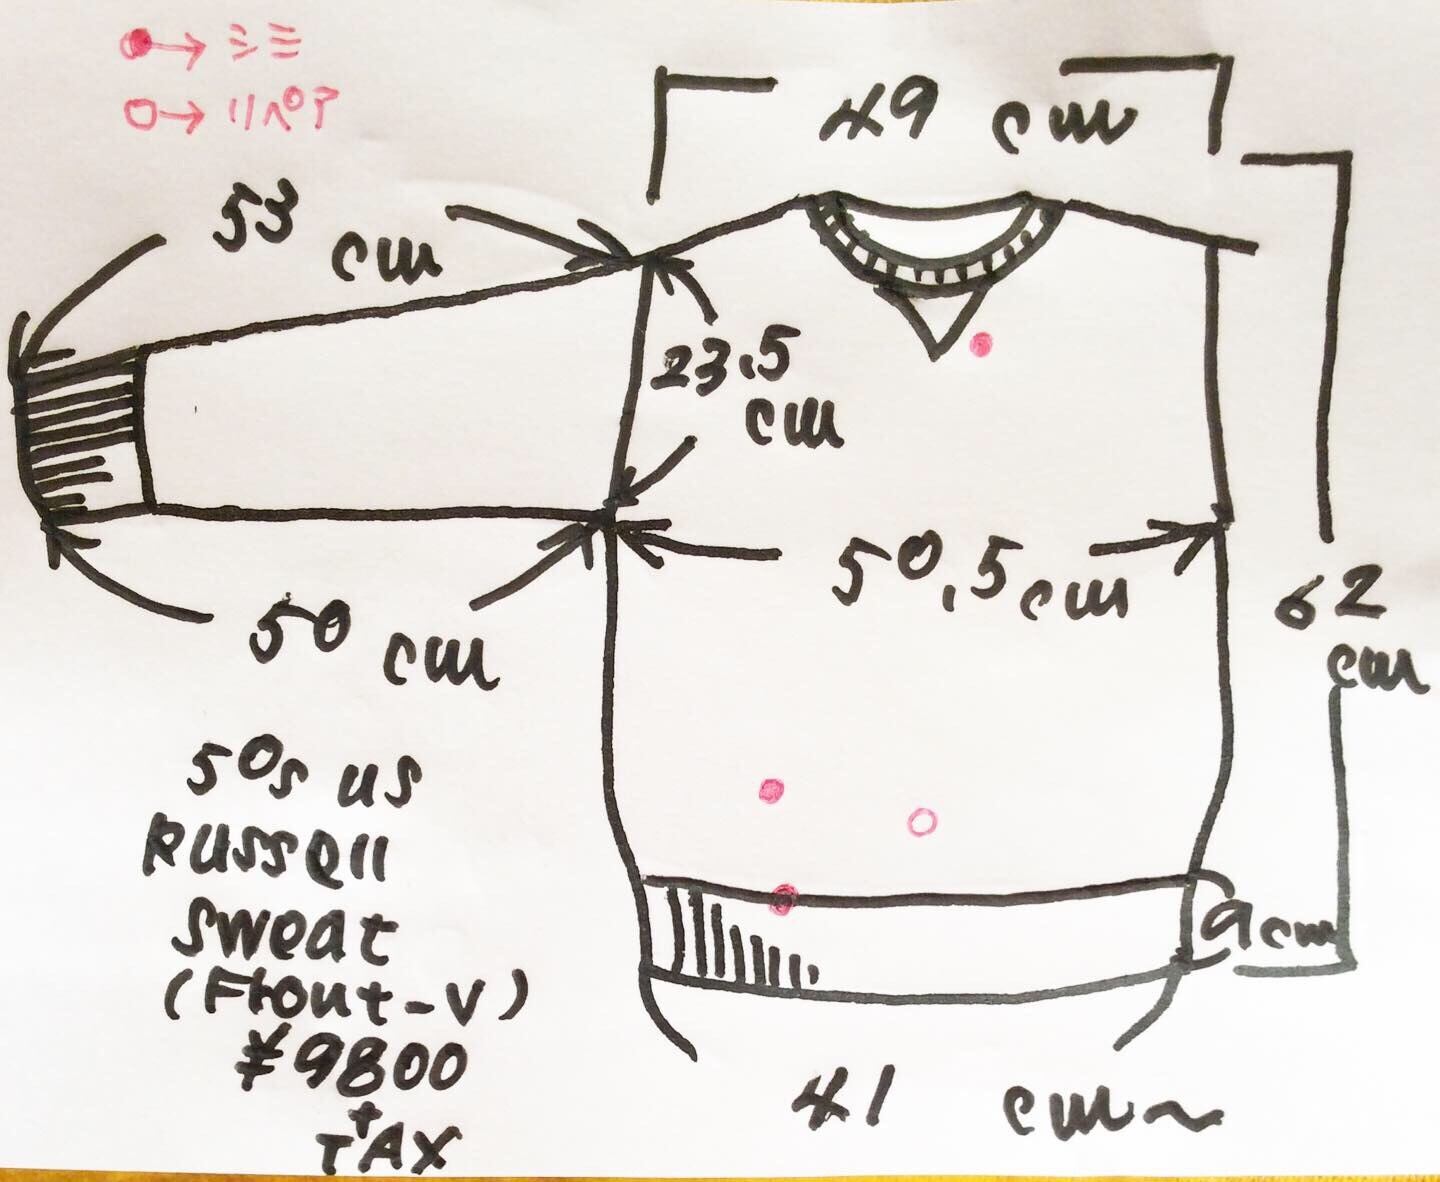 → シミ
→ リペア
49 cm
53 cm
23.5 cm
50.5cm
62 cm
50 cm
9cm
41 cm~
50s us
Russell
Sweat
(Front-V)
¥9800
+
TAX